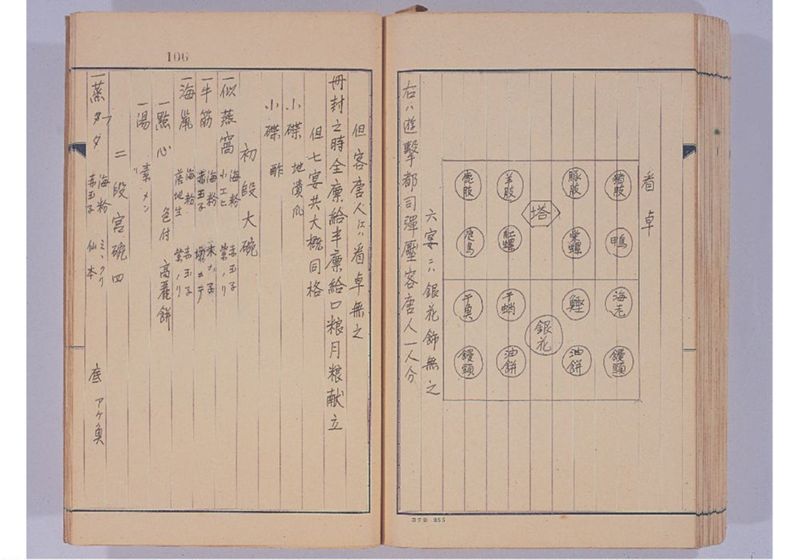 看卓
猪股
鴨
海老
饅頭
豚股
鰹
油餅
塔
銀花
羊股
干蛸
油餅
鹿股
干魚
饅頭
六宴ニハ銀花飾無之
右ハ遊撃都司弾壓客唐人一人分
106
但客唐人ニハ看卓無之
冊封之時全廩給半廩給口粮月粮献立
但七宴共大概同格
小碟 地漬瓜
小碟 酢
初段大碗
一似燕窩 小エビ 海粉 赤玉子 紫ノリ
一牛筋 赤玉子 海粉
一海鼠 落地生 海粉 紫ノリ 赤玉子
一點心 色付 高麗餅
一湯 素メン
二段宮碗四
一蒸 赤玉子 海粉 底 アケ魚